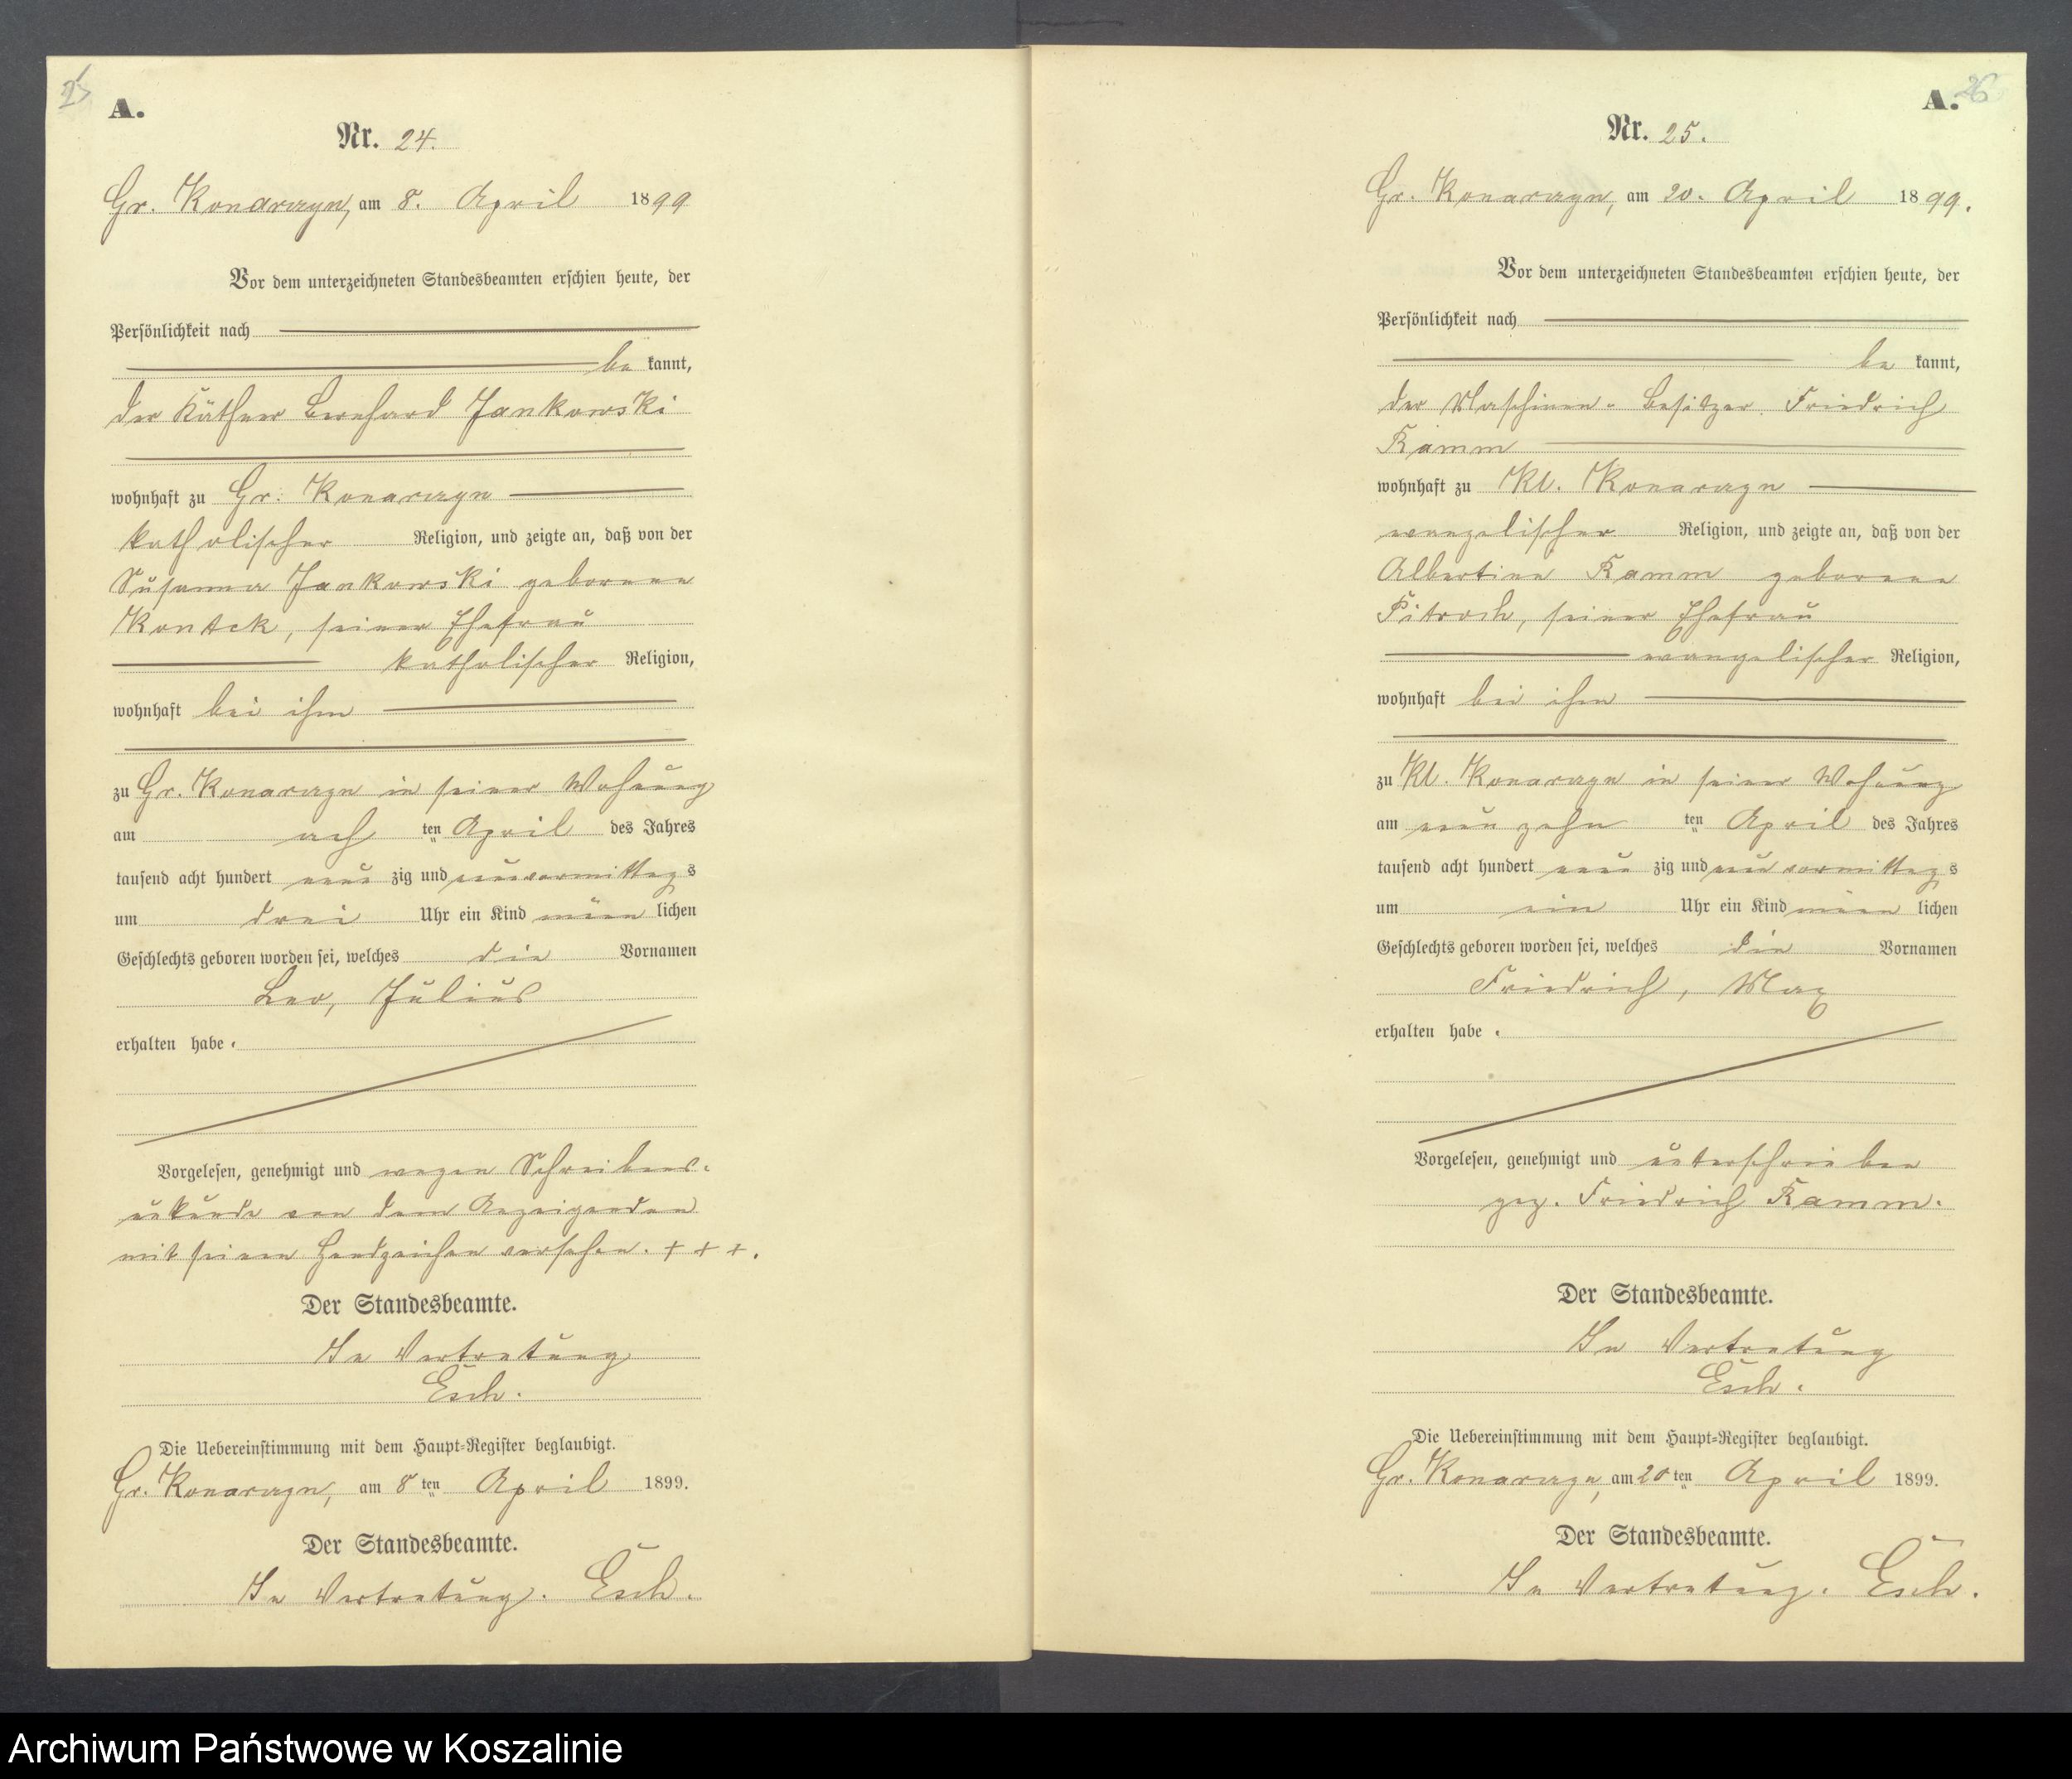 25
A.
Nr. 24.
Gr. Konarczyn, am 8. April 1899
Vor dem unterzeichneten Standesbeamten erschien heute, der
Persönlichkeit nach
be kannt,
der Käthner Bernhard Jankowski
wohnhaft zu Gr. Konarczyn
katholischer Religion, und zeigte an, daß von der
Susanna Jankowski geborene
Kontek, seiner Ehefrau
katholischer Religion,
wohnhaft bei ihm
zu Gr. Konarczyn in seiner Wohnung
am ach ten April des Jahres
tausend acht hundert neun zig und neun vormittag s
um drei Uhr ein Kind männ lichen
Geschlechts geboren worden sei, welches die Vornamen
Leo, Julius
erhalten habe.
Vorgelesen, genehmigt und wegen Schreibens-
unkunde von dem Anzeigenden
mit seinen Handzeichen versehen. + + +.
Der Standesbeamte.
In Vertretung
Esch.
Die Uebereinstimmung mit dem Haupt-Register beglaubigt.
Gr. Konarczyn, am 8 ten April 1899.
Der Standesbeamte.
In Vertretung. Esch.
A. 26
Nr. 25.
Gr. Konarczyn, am 20. April 1899.
Vor dem unterzeichneten Standesbeamten erschien heute, der
Persönlichkeit nach
be kannt,
der Maschinen-Besitzer Friedrich
Ramm
wohnhaft zu Kl. Konarczyn
evangelischer Religion, und zeigte an, daß von der
Albertine Ramm geborene
Pitroch, seiner Ehefrau
evangelischer Religion,
wohnhaft bei ihm
zu Kl. Konarczyn in seiner Wohnung
am neun zehn ten April des Jahres
tausend acht hundert neun zig und neun vormittag s
um ein Uhr ein Kind männ lichen
Geschlechts geboren worden sei, welches die Vornamen
Friedrich, Max
erhalten habe.
Vorgelesen, genehmigt und unterschrieben
gez. Friedrich Ramm.
Der Standesbeamte.
In Vertretung
Esch.
Die Uebereinstimmung mit dem Haupt-Register beglaubigt.
Gr. Konarczyn, am 20 ten April 1899.
Der Standesbeamte.
In Vertretung. Esch.
Archiwum Państwowe w Koszalinie